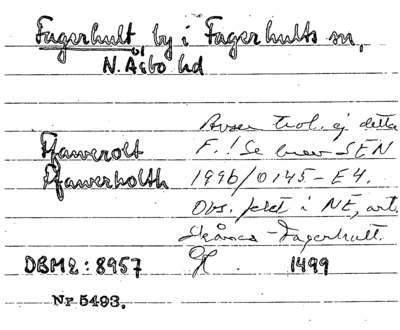 Fagerhult, by i Fagerhults sn,
N. Åsbo hd
Avser trol. ej detta
Ffawerolt F.! Se brev SEN
Ffawerholth 1996/0145-E4.
Obs. felet i NE, art.
Skånes-Fagerhult.
DBM2: 8957 Of 1499
Nr 5493.